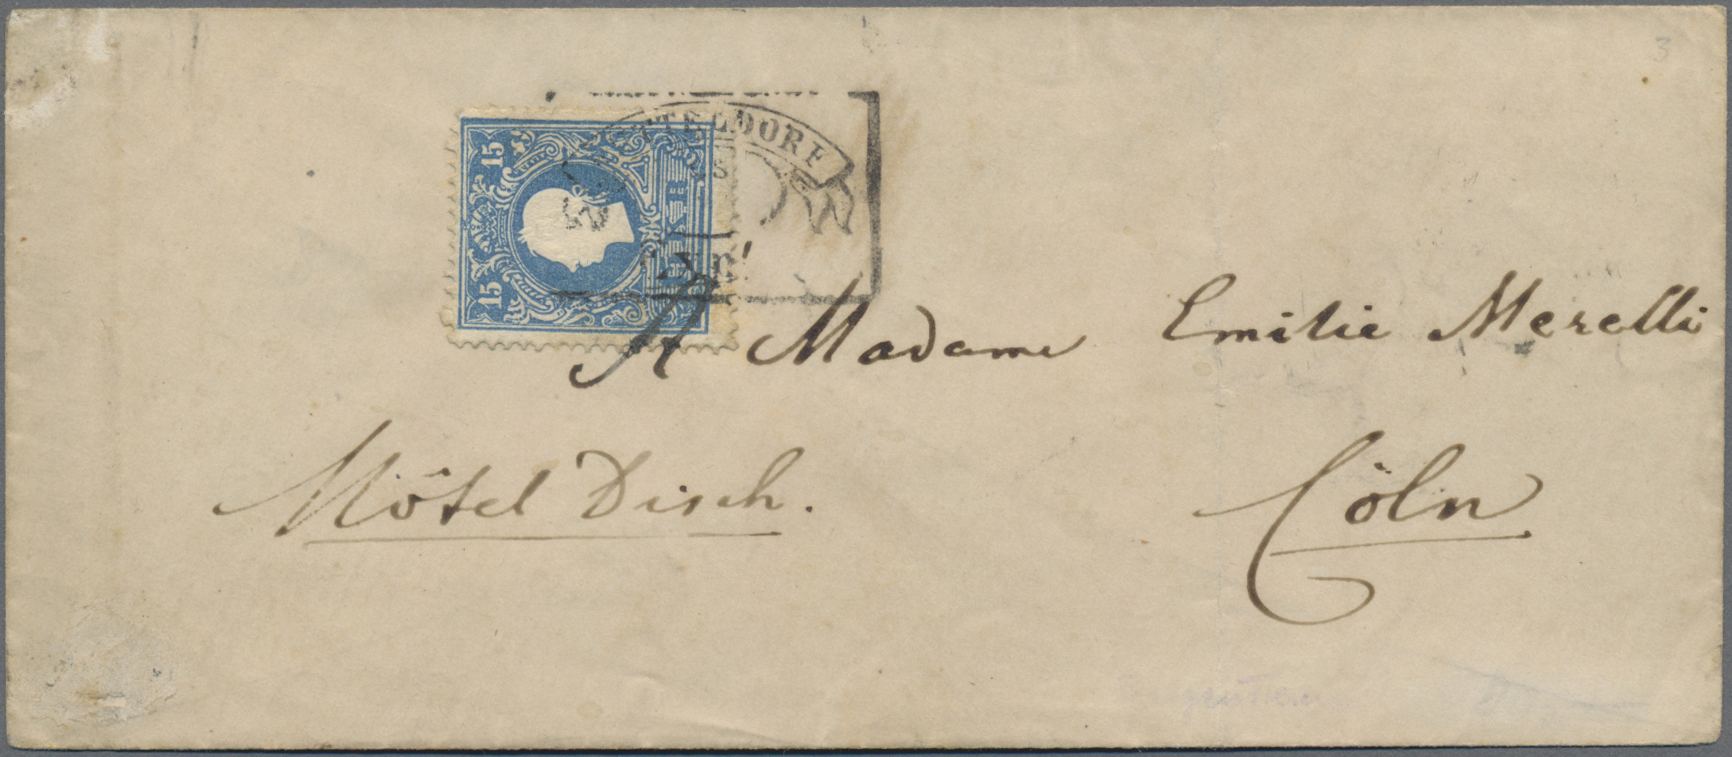 3
15 15
A Madame Emilie Merelli
Hôtel Disch.
Cöln